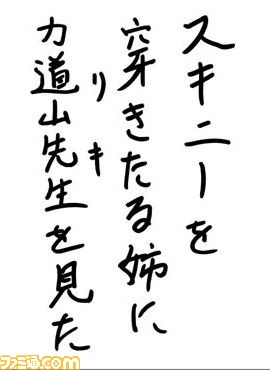 スキニーを
穿きたる姉に
力道山先生を見た
リキ
ファミ通.com